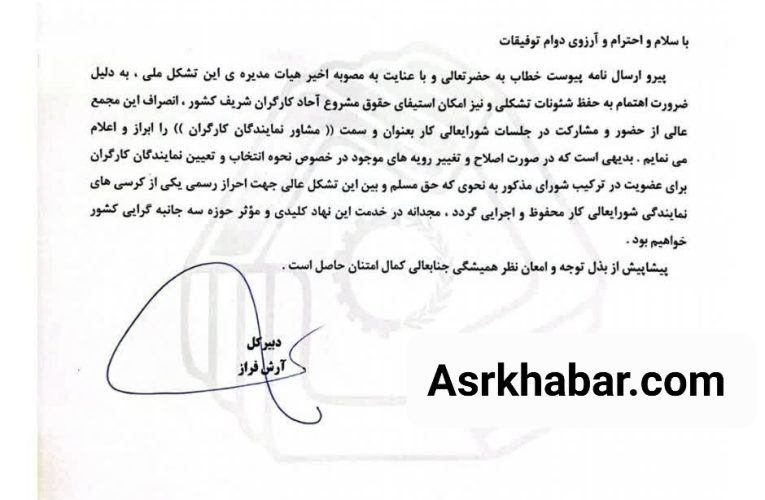 با سلام و احترام و آرزوی دوام توفیقات
پیرو ارسال نامه پیوست خطاب به حضرتعالی و با عنایت به مصوبه اخیر هیات مدیره ی این تشکل ملی ، به دلیل
ضرورت اهتمام به حفظ شئونات تشکلی و نیز امکان استیفای حقوق مشروع آحاد کارگران شریف کشور ، انصراف این مجمع
عالی از حضور و مشارکت در جلسات شورایعالی کار بعنوان و سمت (( مشاور نمایندگان کارگران )) را ابراز و اعلام
می نمایم . بدیهی است که در صورت اصلاح و تغییر رویه های موجود در خصوص نحوه انتخاب و تعیین نمایندگان کارگران
برای عضویت در ترکیب شورای مذکور به نحوی که حق مسلم و بین این تشکل عالی جهت احراز رسمی یکی از کرسی های
نمایندگی شورایعالی کار محفوظ و اجرایی گردد ، مجدانه در خدمت این نهاد کلیدی و مؤثر حوزه سه جانبه گرایی کشور
خواهیم بود .
پیشاپیش از بذل توجه و امعان نظر همیشگی جنابعالی کمال امتنان حاصل است .
دبیرکل
آرش فراز
Asrkhabar.com